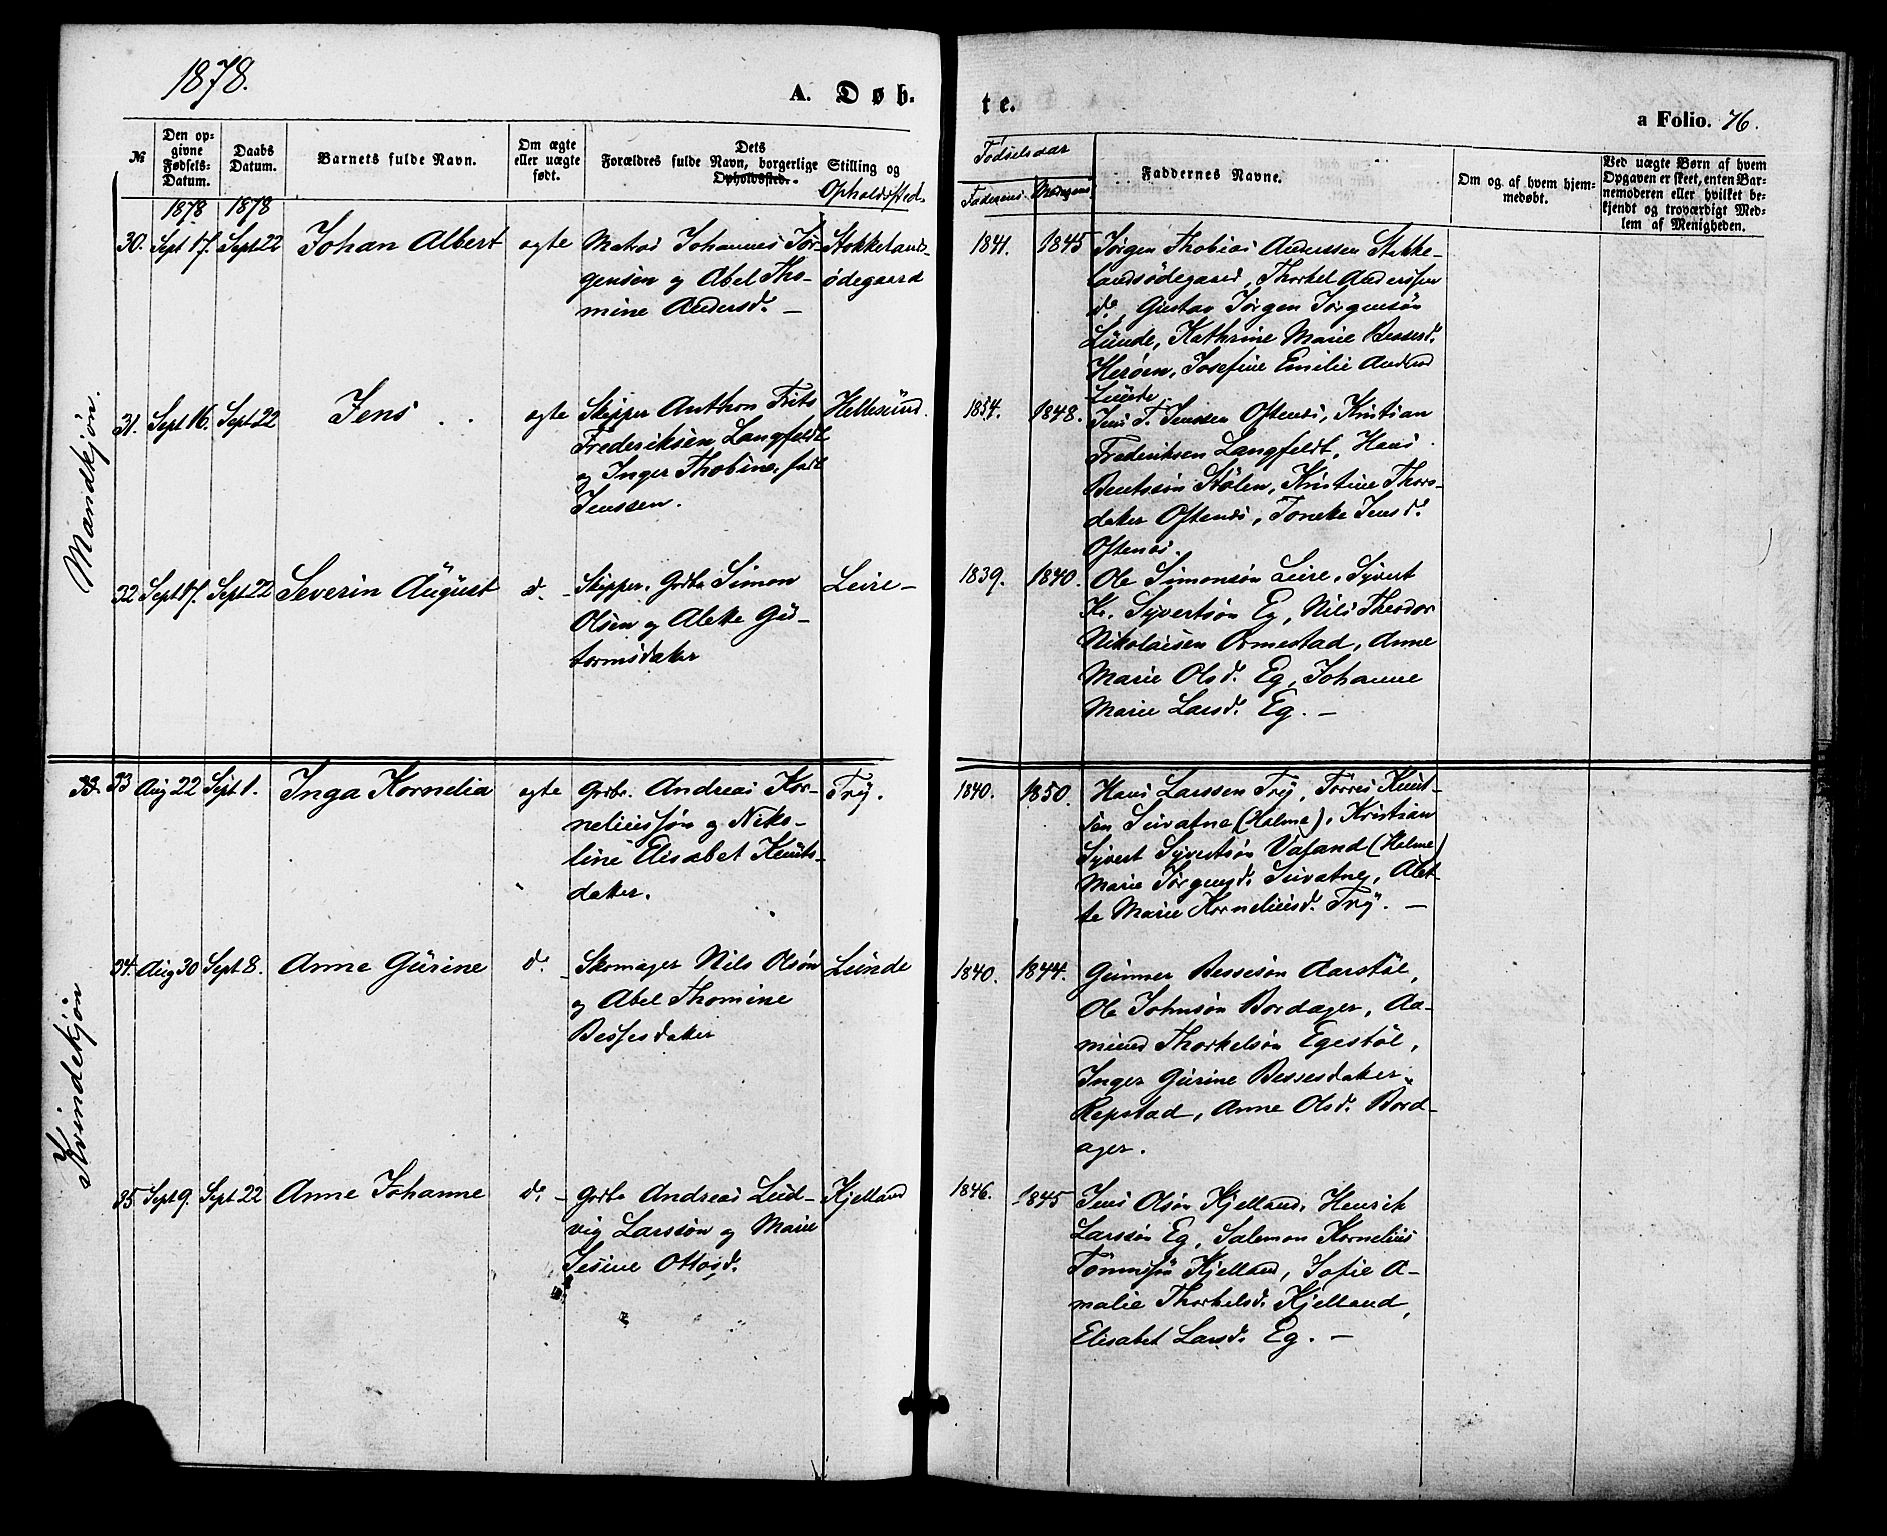 1878.
A. Døb.
te.
a Folio. 76.
№
Den op-
givne
Fødsels-
Datum.
Daabs
Datum.
Barnets fulde Navn.
Om ægte
eller uægte
født.
Dets
Forældres fulde Navn, borgerlige
Opholdssted.
Stilling og
Opholdssted.
Fødselsaar
Faderens.
Moderens
Faddernes Navne.
Om og af hvem hjem-
medøbt.
Ved uægte Børn af hvem
Opgaven er skeet, enten Bar-
nemoderen eller hvilket be-
kjendt og troværdigt Med-
lem af Menigheden.
Mandkjøn.
1878
1878
30.
Sept 17.
Sept 22
Johan Albert
ægte
Matros Johannes Jør-
gensen og Abel Tho-
mine Andersd. —
Stokkelands-
ødegaard
1841.
1845
Jørgen Thobias Anderssen Stokke-
landsødegaard, Thorkel Anderssen
do, Gustav Jørgen Jørgensøn
Lunde, Kathrine Marie Bessesd.
Herøen, Josefine Emilie Andersd
Lunde.
31.
Sept 16.
Sept 22
Jens
ægte
Skipper Anthon Frits
Frederiksen Langfeldt
og Inger Thobine, født
Jenssen.
Hellesund.
1854.
1848.
Jens T. Jenssen Oftenes, Kristian
Frederiksen Langfeldt, Hans
Bentssøn Stølen, Kristine Thors-
datter Oftenes, Tomke Jensd.
Oftenes.
32
Sept 17.
Sept 22
Severin August
d. -
Skipper. Grbr. Simon
Olsen og Alette Gu-
tormsdatter
Leire -
1839.
1840.
Ole Simonsøn Leire, Syvert
Kr. Syvertsøn Eg, Nils Theodor
Nikolaisen Ormestad, Anne
Marie Olsd. Eg, Johanne
Marie Larsd. Eg. —
Kvindekjøn
33
Aug 22
Sept 1.
Inga Kornelia
ægte
Grbr. Andreas Kor-
neliussøn og Niko-
line Elisabet Knuts-
datter.
Try.
1840.
1850.
Hans Larssen Try, Torres Knut-
sen Suvatne (Holme), Kristian
Syvert Syvertsøn Valand (Holme)
Marie Jørgensd. Suvatne, Alet-
te Marie Korneliusd. Try. —
34.
Aug 30
Sept 8.
Anne Gurine
d. -
Skomager Nils Olsøn
og Abel Thomine
Bessesdatter
Lunde
1840.
1844.
Gunner Bessesøn Aarstøl,
Ole Johnsøn Bordager, Aa-
mund Thorkelsøn Egestøl,
Inger Gurine Bessesdatter
Repstad, Anne Olsd. Bord-
ager.
35
Sept 9.
Sept 22
Anne Johanne
d. -
Grbr. Andreas Lud-
vig Larssøn og Marie
Jesine Ottosd.
Kjelland
1846.
1845
Jens Olsøn Kjelland, Henrik
Larssøn Eg, Salemon Kornelius
Tønnessøn Kjelland, Sofie A-
malie Thorkelsd. Kjelland,
Elisabet Larsd. Eg. —